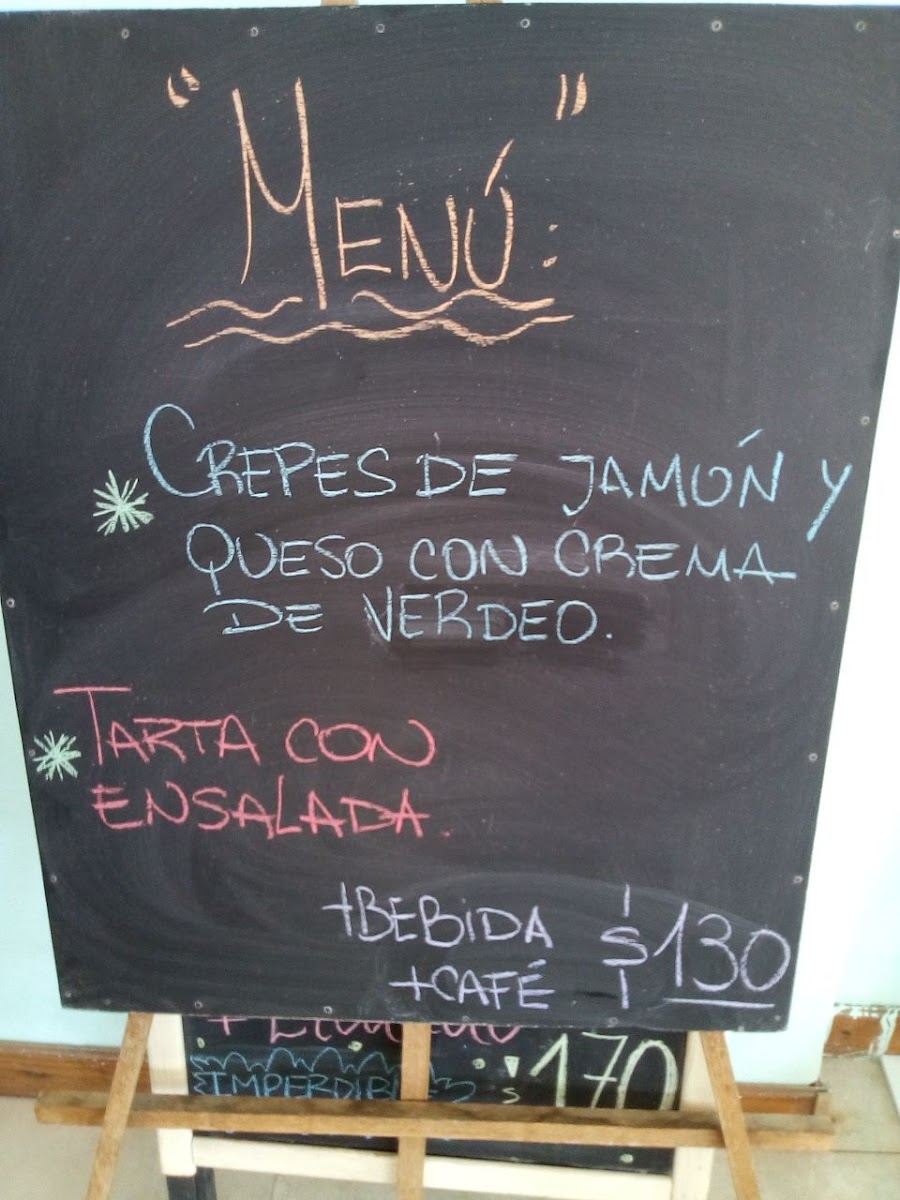 "MENÚ:"
* CREPES DE JAMÓN Y
QUESO CON CREMA
DE VERDEO.
* TARTA CON
ENSALADA.
+BEBIDA
+CAFÉ $130
IMPERDIBLE $170